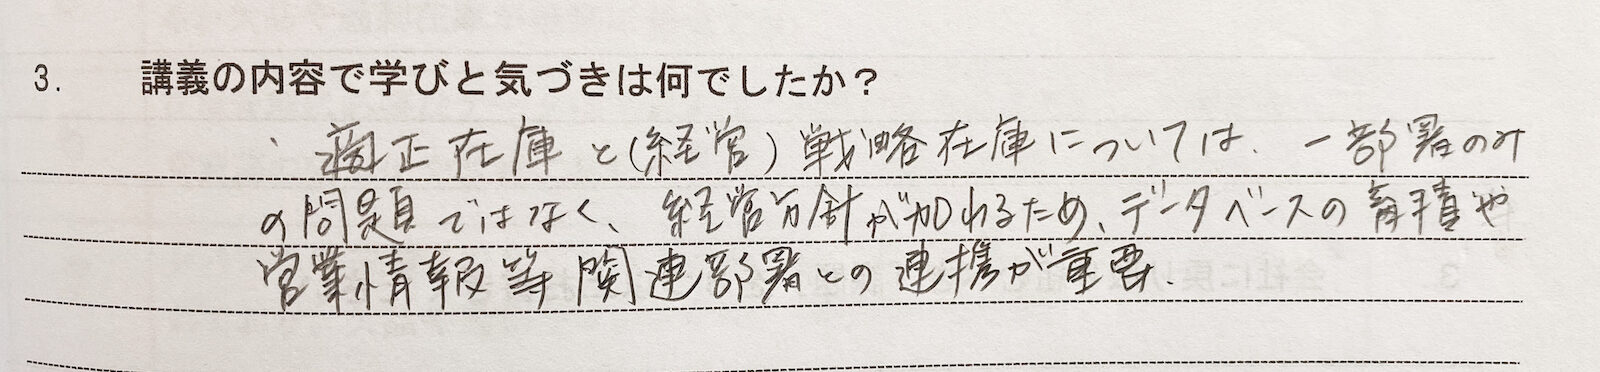 3. 講義の内容で学びと気づきは何でしたか？
・適正在庫と(経営)戦略在庫については、一部署のみ
の問題ではなく、経営方針が加わるため、データベースの蓄積や
営業情報等関連部署との連携が重要.